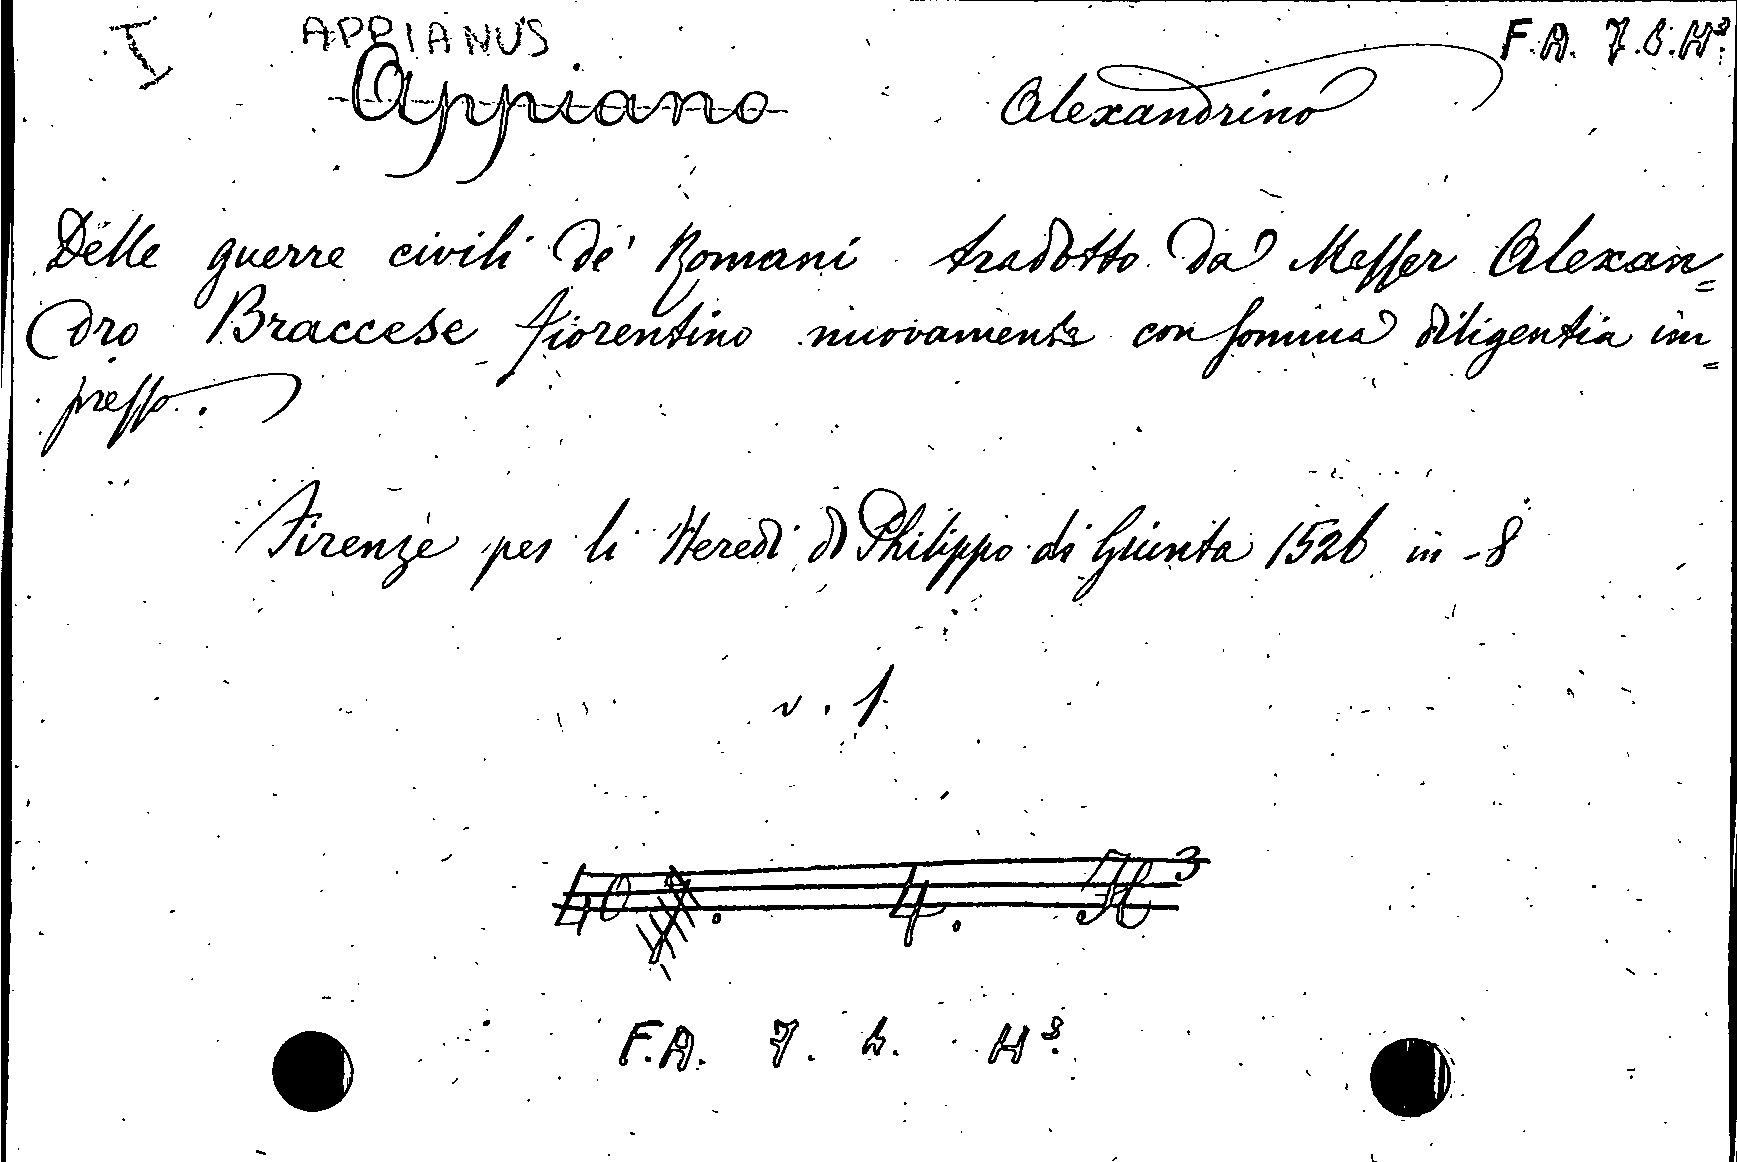 I APPIANUS F.A. 7.b.H³.
Appiano Alexandrino
Delle guerre civili de' Romani tradotto da Messer Alexan=
dro Braccese fiorentino nuovamente con somma diligentia im=
presso.
Firenze per li Heredi di Philippo di Giunta 1526 in -8
v. 1
4. H³
F.A. 7. b. H³.